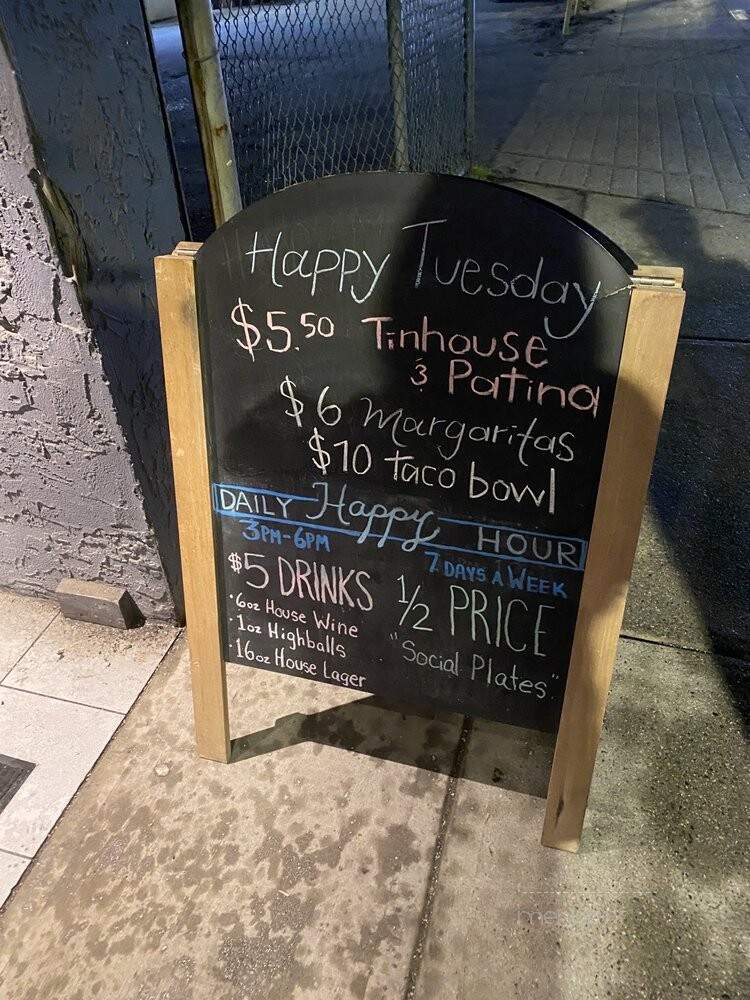 Happy Tuesday
$5.50 Tinhouse
& Patina
$6 Margaritas
$10 taco bowl
DAILY Happy HOUR
3PM-6PM
7 DAYS A WEEK
$5 DRINKS
· 6oz House Wine
· 1oz Highballs
· 16oz House Lager
1/2 PRICE
"Social Plates"